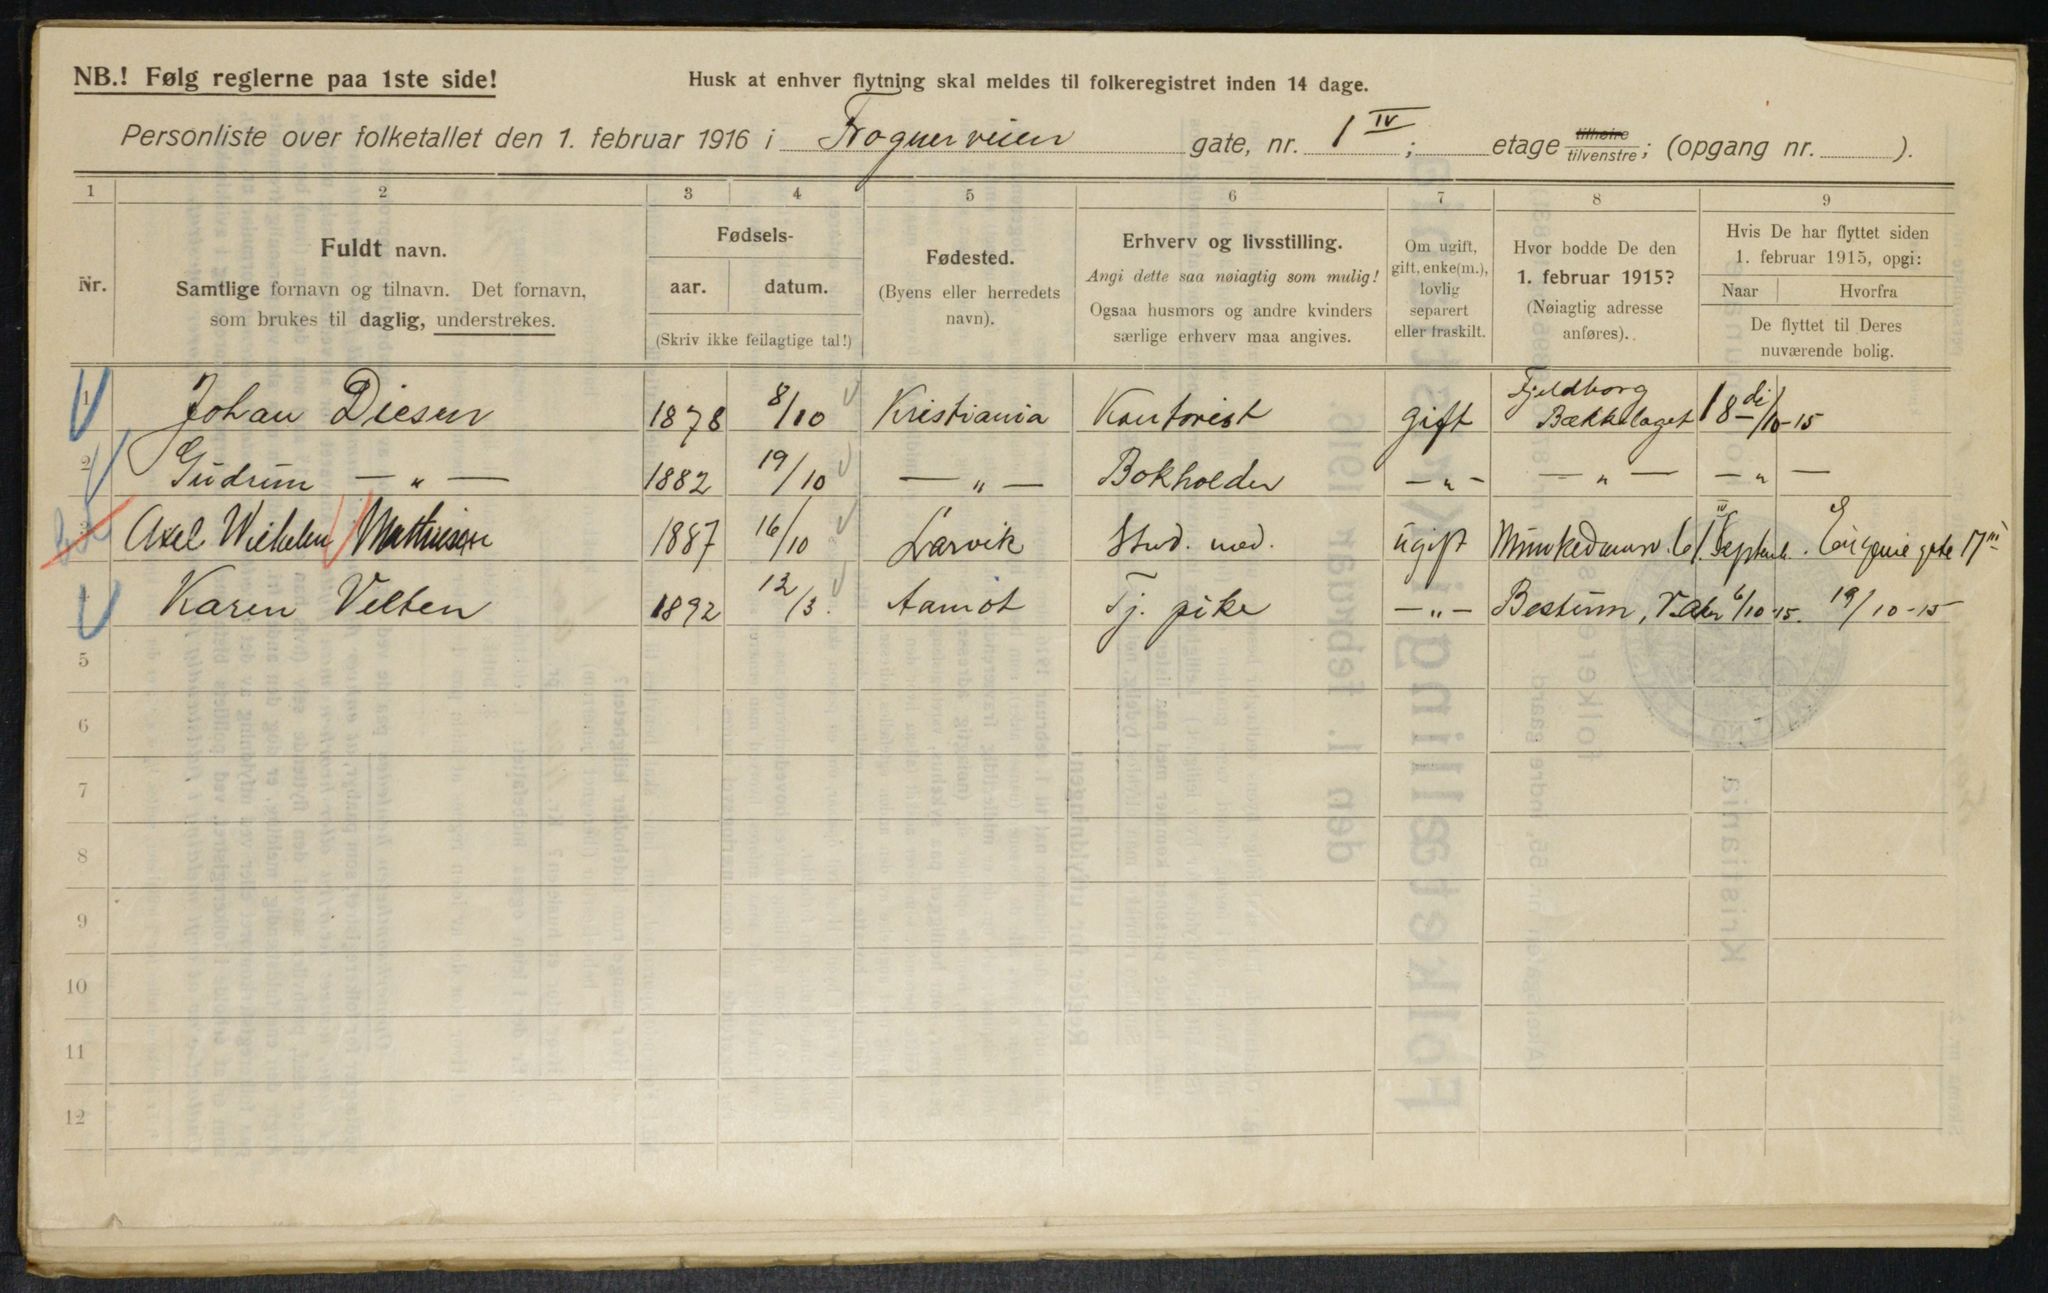 NB.! Følg reglerne paa 1ste side!
Husk at enhver flytning skal meldes til folkeregistret inden 14 dage.
Personliste over folketallet den 1. februar 1916 i Frognerveien gate, nr. 1 IV ; etage tilhøire tilvenstre; (opgang nr. ).
1 2 3 4 5 6 7 8 9
Nr.
Fuldt navn.
Samtlige fornavn og tilnavn. Det fornavn,
som brukes til daglig, understrekes.
Fødsels-
aar. datum.
(Skriv ikke feilagtige tal!)
Fødested.
(Byens eller herredets
navn).
Erhverv og livsstilling.
Angi dette saa nøiagtig som mulig!
Ogsaa husmors og andre kvinders
særlige erhverv maa angives.
Om ugift,
gift, enke(m.),
lovlig
separert
eller fraskilt.
Hvor bodde De den
1. februar 1915?
(Nøiagtig adresse
anføres).
Hvis De har flyttet siden
1. februar 1915, opgi:
Naar Hvorfra
De flyttet til Deres
nuværende bolig.
1 Johan Diesen 1878 8/10 Kristiania Kontorist gift Fjeldborg Bækkelaget 18 di/10-15
2 Gudrun — „ — 1882 19/10 — „ — Bokholder — „ — — „ — — „ —
3 Axel Wilhelm Mathiesen 1887 16/10 Larvik Stud. med. ugift Munkedamsv. 61 IV Septemb. Eugenie gate 17 III
4 Karen Velten 1892 12/3. Aamot Tj. pike — „ — Bestum, V. Aker 6/10-15. 19/10-15
5
6
7
8
9
10
11
12